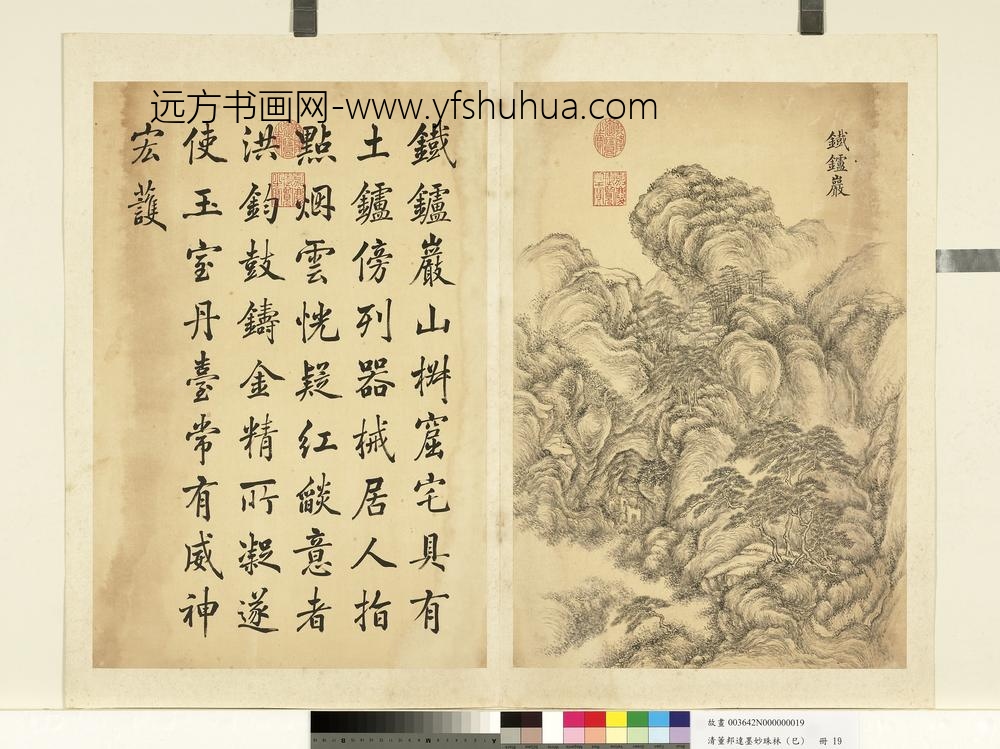 远方书画网-www.yfshuhua.com
鐵鑪巖
鐵鑪巖山椒窟宅具有
土鑪傍列器械居人指
點烟雲恍疑红燄意者
洪鈞鼓鑄金精所凝遂
使玉室丹臺常有威神
宏護
故畫 003642N000000019
清董邦達墨妙珠林（巳） 冊 19